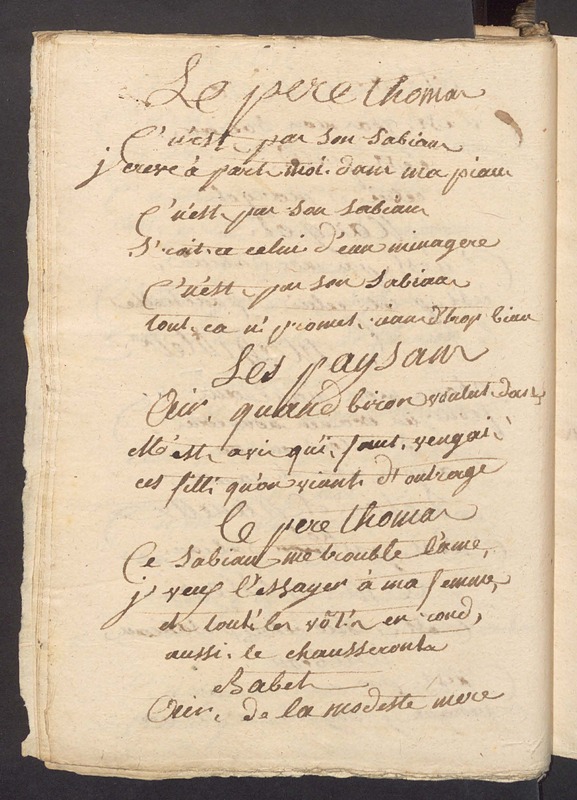 Le pere thomas
C'n'est pas son sabiau
j'creve à part moi dans ma piau
C'n'est pas son sabiau
S'roit ce celui d'eun minagere
C'n'est pas son sabiau
tout ça n'promet rian d'trop biau
Les paysans
Air, quand biron voulut danser
M'est avis qu'i faut vengai
ces filli qu'on viant d'outrage
le pere thomas
Ce sabiau me trouble l'ame,
j'veux l'essayer à ma femme,
et touti les vôt'r en rond,
aussi le chausseronts
Babet
Air, de la modeste mere